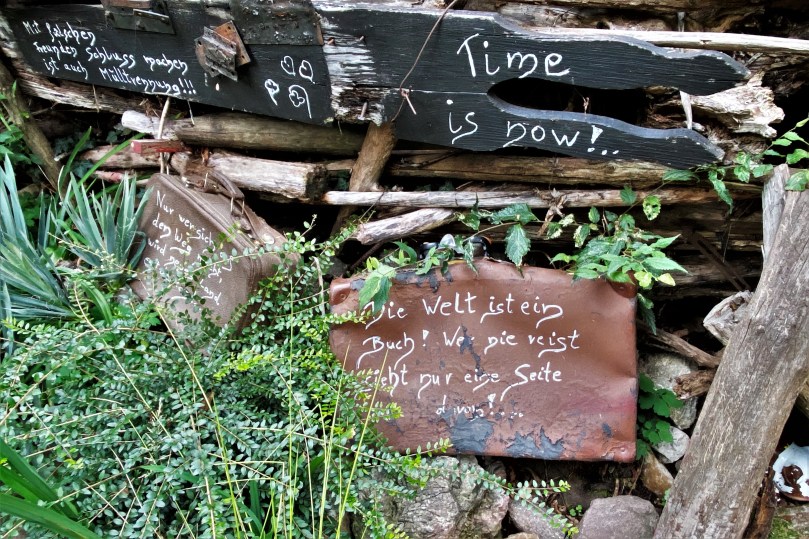 Mit falschen
Freunden Schluss machen
ist auch Mülltrennung!!!
Time
is now!..
Nur wer sich
den Weg
wird
Die Welt ist ein
Buch! Wer nie reist
sieht nur eine Seite
davon!...